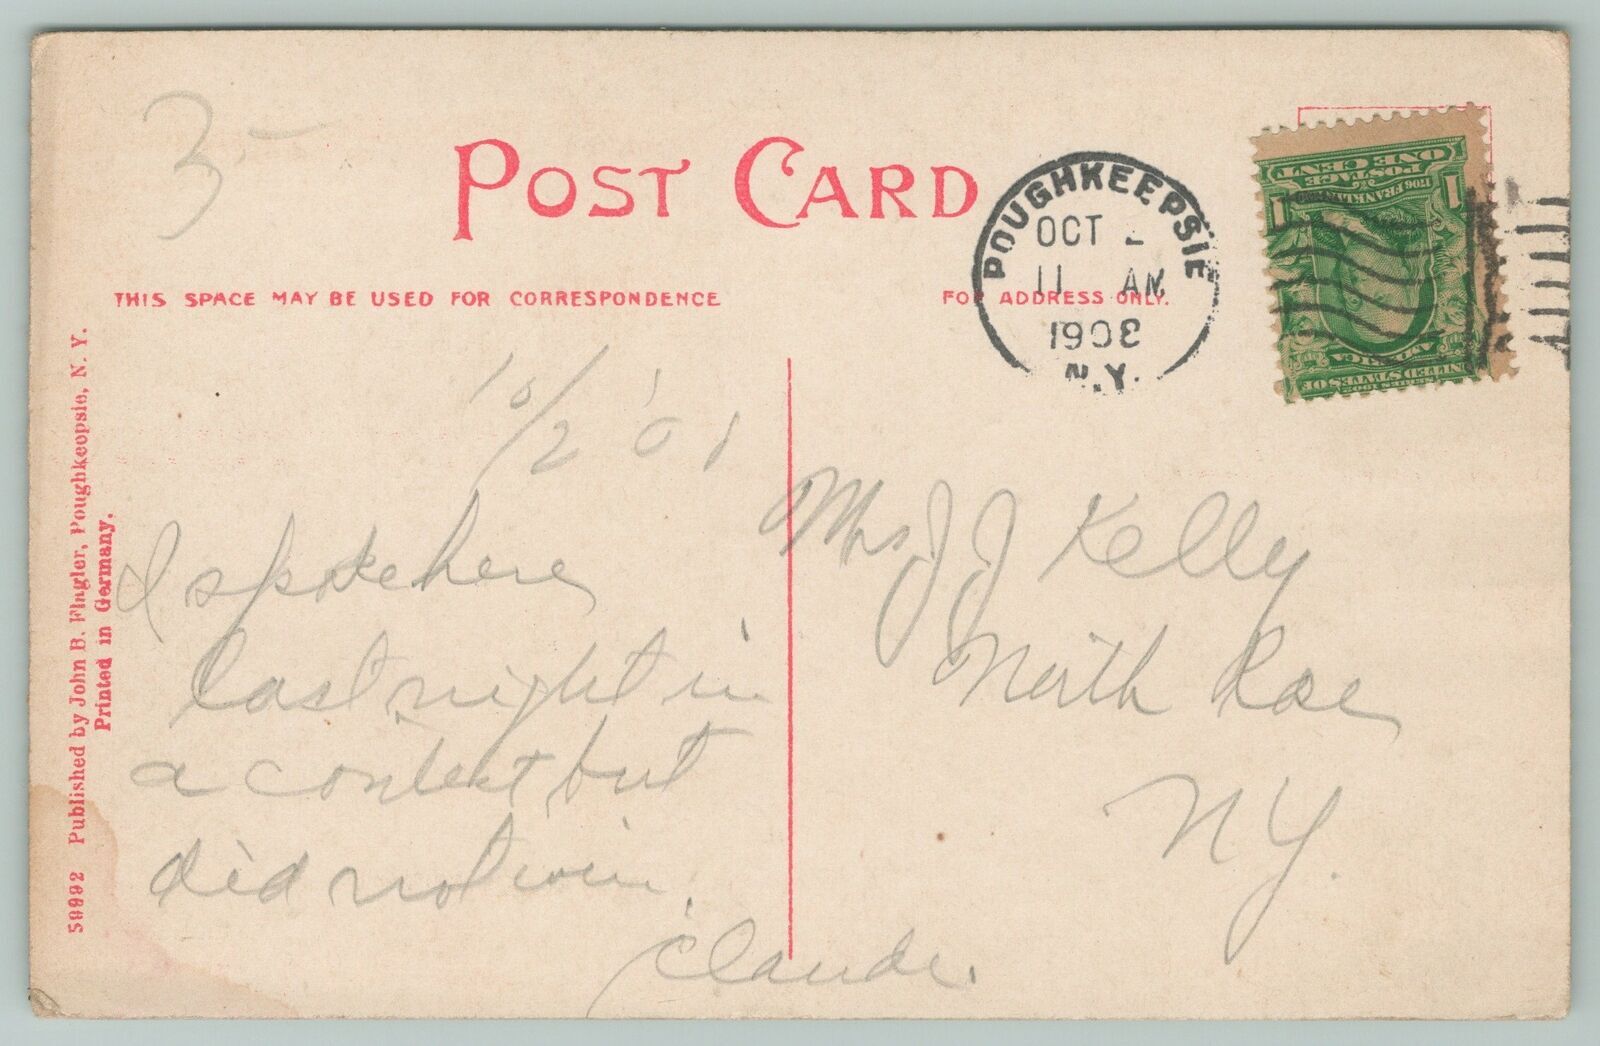 3-
POST CARD
THIS SPACE MAY BE USED FOR CORRESPONDENCE
FOR ADDRESS ONLY.
POUGHKEEPSIE
OCT 2
11 AM
1908
N.Y.
1 POSTAGE 1
ONE CENT
1706 FRANKLIN
SERIES 1902
UNITED STATES OF
AMERICA
10/2 '01
I spoke here
last night in
a contest but
did not win.
Claude.
Mrs J J Kelly
North Rose
N Y.
59992 Published by John B. Flagler, Poughkeepsie, N. Y.
Printed in Germany.